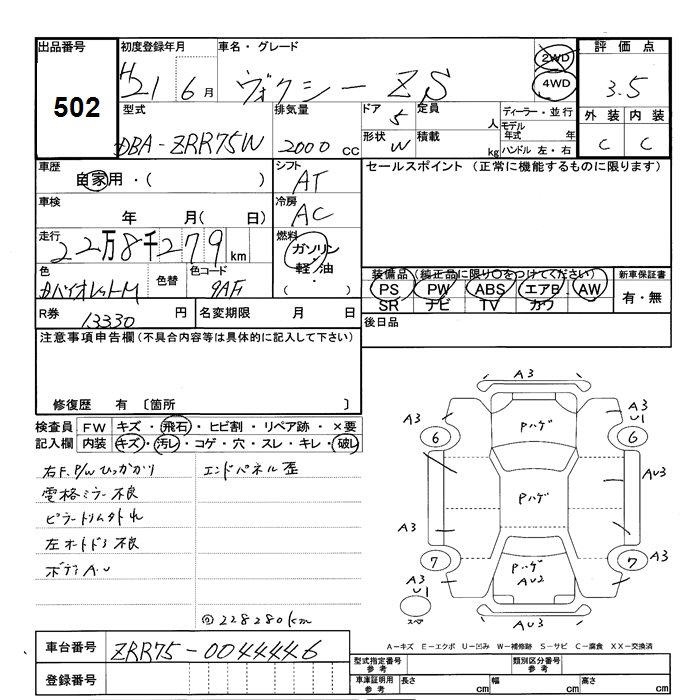 出品番号 初度登録年月 車名・グレード 2WD 評価点
502 H21 6月 ヴォクシー ZS 4WD 3.5
型式 排気量 ドア 定員 ディーラー・並行 外装 内装
DBA-ZRR75W 2000cc 5 人 モデル年式 年 C C
形状 W 積載 kg ハンドル 左・右
車歴 シフト セールスポイント (正常に機能するものに限ります)
自家用・( ) AT
車検 冷房
年 月( 日) AC
走行 燃料
22万8千279km ガソリン
色 色替 色コード 軽油 装備品 (純正品に限り〇をつけてください) 新車保証書
バイオレットM 9AF ( ・ ) PS PW ABS エアB AW 有・無
SR ナビ TV カワ
R券 13330円 名変期限 月 日 後日品
注意事項申告欄 (不具合内容等は具体的に記入して下さい)
修復歴 有 〔箇所 〕
検査員 FW キズ・飛石・ヒビ割・リペア跡・×要
記入欄 内装 キズ・汚レ・コゲ・穴・スレ・キレ・破レ
右F.P/Wひっかかり エンドパネル歪
電格ミラー不良
ピラートリム外れ
左オートドア不良
ボディAU
228280km
A3
A3 U1 A3 U1
6 Pハゲ 6
Pハゲ AU3
A3 A3
7 Pハゲ AU2 7 A3
A3 U1
スペ
AU3
A-キズ E-エクボ U-凹み W-補修跡 S-サビ C-腐食 XX-交換済
車台番号 ZRR75-0044446
型式指定番号 参考 類別区分番号 参考
登録番号 車庫証明用 参考 長さ cm 幅 cm 高さ cm